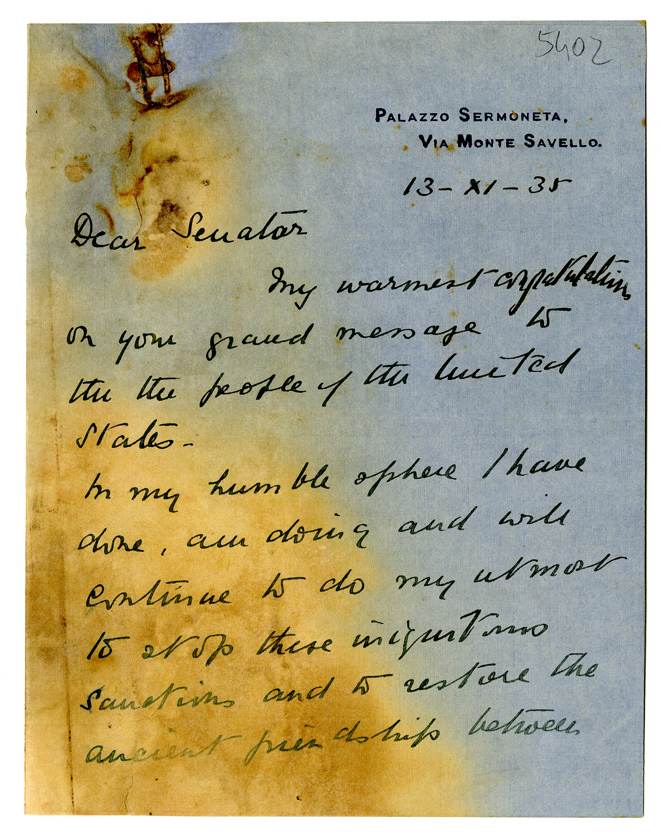 5402
PALAZZO SERMONETA,
VIA MONTE SAVELLO.
13 - XI - 35
Dear Senator
My warmest congratulations
on your grand message to
the the people of the United
States -
In my humble sphere I have
done, am doing and will
continue to do my utmost
to stop these iniquitous
sanctions and to restore the
ancient friendship between